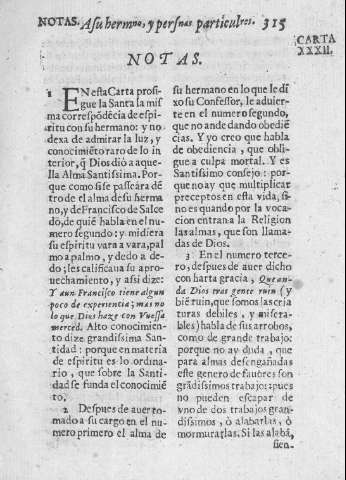 NOTAS. A su hermno, y persnas particulres. 315
CARTA
XXXII.
NOTAS.
1 EN esta Carta prosi
gue la Santa la mis
ma correspõdẽcia de espi-
ritu con su hermano: y no
dexa de admirar la luz, y
conocimiẽto raro de lo in
terior, q̃ Dios dió a aque-
lla Alma Santissima. Por-
que como si se passeàra dẽ
tro el alma de su herma
no, y de Francisco de Salce
dò, de quiẽ habla en el nu-
mero segundo: y midiera
su espiritu vara a vara, pal
mo a palmo, y dedo a de-
do; les calificaua su apro-
uechamiento, y assi dize:
Y aun Francisco tiene algun
poco de experiencia; mas no
lo que Dios haze con Vuessa
merced. Alto conocimien-
to dize grandissima San-
tidad: porque en materia
de espiritu es lo ordina-
rio, que sobre la Santi-
dad se funda el conocimiẽ
to.
2 Despues de auer to-
mado a su cargo en el nu-
mero primero el alma de
su hermano en lo que le di
xo su Confessor, le aduier-
te en el numero segundo,
que no ande dando obediẽ
cias. Y yo creo que habla
de obediencia, que obli-
gue a culpa mortal. Y es
Santissimo consejo: por-
que no ay que multiplicar
preceptos en esta vida, si-
no es quando por la voca-
cion entran a la Religion
las almas, que son llama-
das de Dios.
3 En el numero terce-
ro, despues de auer dicho
con harta gracia, Que an-
da Dios tras gente ruin (y
biẽ ruin, que somos las cria
turas debiles, y misera-
bles) habla de sus arrobos,
como de grande trabajo:
porque no ay duda, que
para almas desengañadas
este genero de fauores son
grãdissimos trabajos: pues
no pueden escapar de
vno de dos trabajos gran-
dissimos, ò alabarlas, ò
mormurarlas. Si las alabã,
sien-